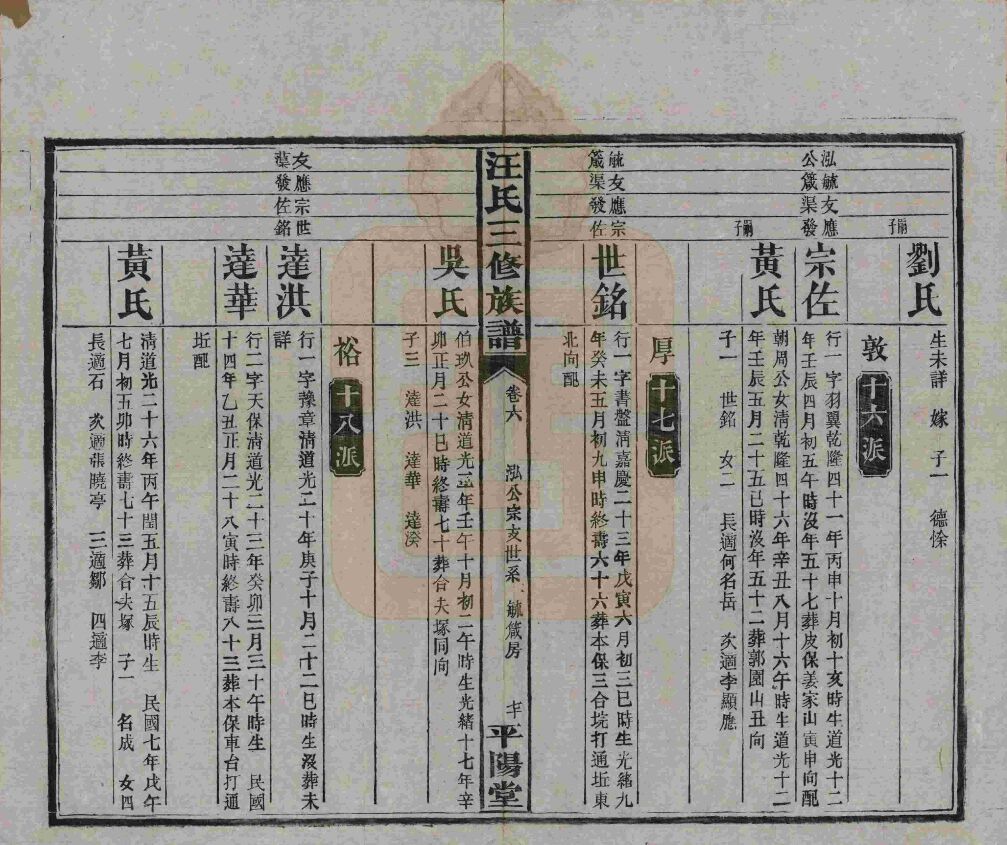 劉氏
嗣子
生未詳　嫁　子一　德悇
敦
十六派
泓毓友應
公箴渠發
宗佐
行一字羽翼乾隆四十一年丙申十月初十亥時生道光十二
年壬辰四月初五午時沒年五十七葬皮保姜家山寅申向配
嗣子
黃氏
朝周公女清乾隆四十六年辛丑八月十六午時生道光十二
年壬辰五月二十五巳時沒年五十二葬郭園山丑向
子一　世銘　女二　長適何名岳　次適李顯應
厚
十七派
毓友應宗
箴渠發佐
世銘
行一字書盤清嘉慶二十三年戊寅六月初三巳時生光緒九
年癸未五月初九申時終壽六十六葬本保三台垸打通坵東
北向配
汪氏三修族譜
卷六　泓公宗支世系　毓箴房　平陽堂
吳氏
伯玖公女清道光二年壬午十月初二午時生光緒十七年辛
卯正月二十巳時終壽七十葬合夫塚同向
子三　達洪　達華　達漢
裕
十八派
友應宗世
渠發佐銘
達洪
行一字豫章清道光二十年庚子十月二十二巳時生沒葬未
詳
達華
行二字天保清道光二十三年癸卯三月三十午時生　民國
十四年乙丑正月二十八寅時終壽八十三葬本保車台打通
坵配
黃氏
清道光二十六年丙午閏五月十五辰時生　民國七年戊午
七月初五卯時終壽七十三葬合夫塚　子一　名成　女四
長適石　次適張曉亭　三適鄒　四適李